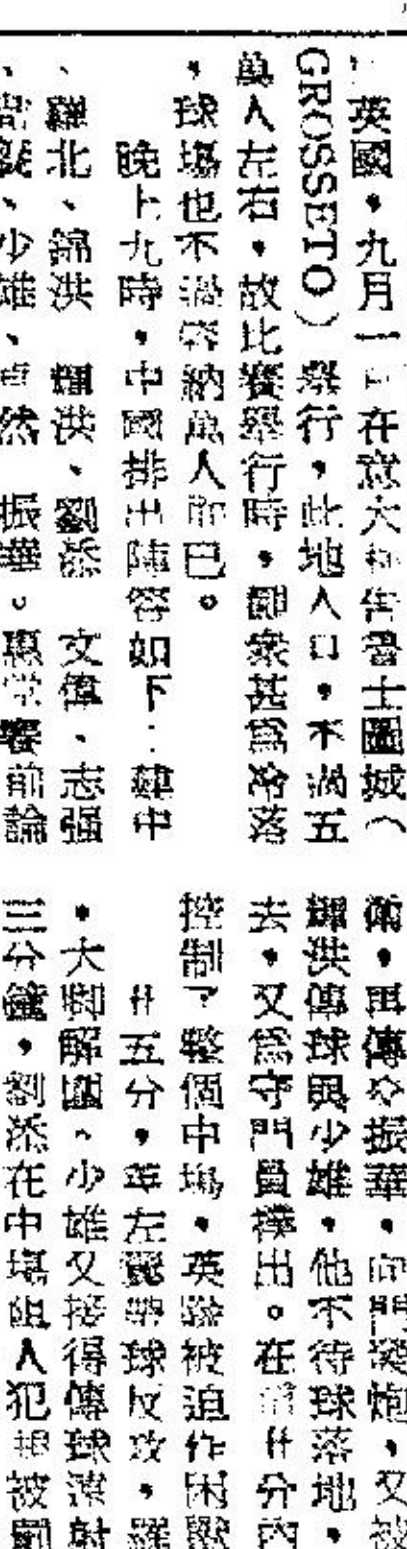 英國，九月一日在意大利告魯士圖城（
GROSSETO）舉行，此地人口，不過五
萬人左右，故比賽舉行時，觀衆甚爲冷落
，球場也不過容納萬人而已。
晚上九時，中國排出陣容如下：建中
、羅北、錦洪、輝洪、劉添、文偉、志强
、少雄、卓然、振華。惠堂賽前論
術，再傳交振華，向門發炮，又被
輝洪傳球與少雄，他不待球落地，
去，又爲守門員撲出。在首廿分內
控制了整個中場，英聯被迫作困獸
廿五分，英左翼帶球反攻，羅
，大脚解圍、少雄又接得傳球速射
三分鐘，劉添在中場阻人犯規被罰